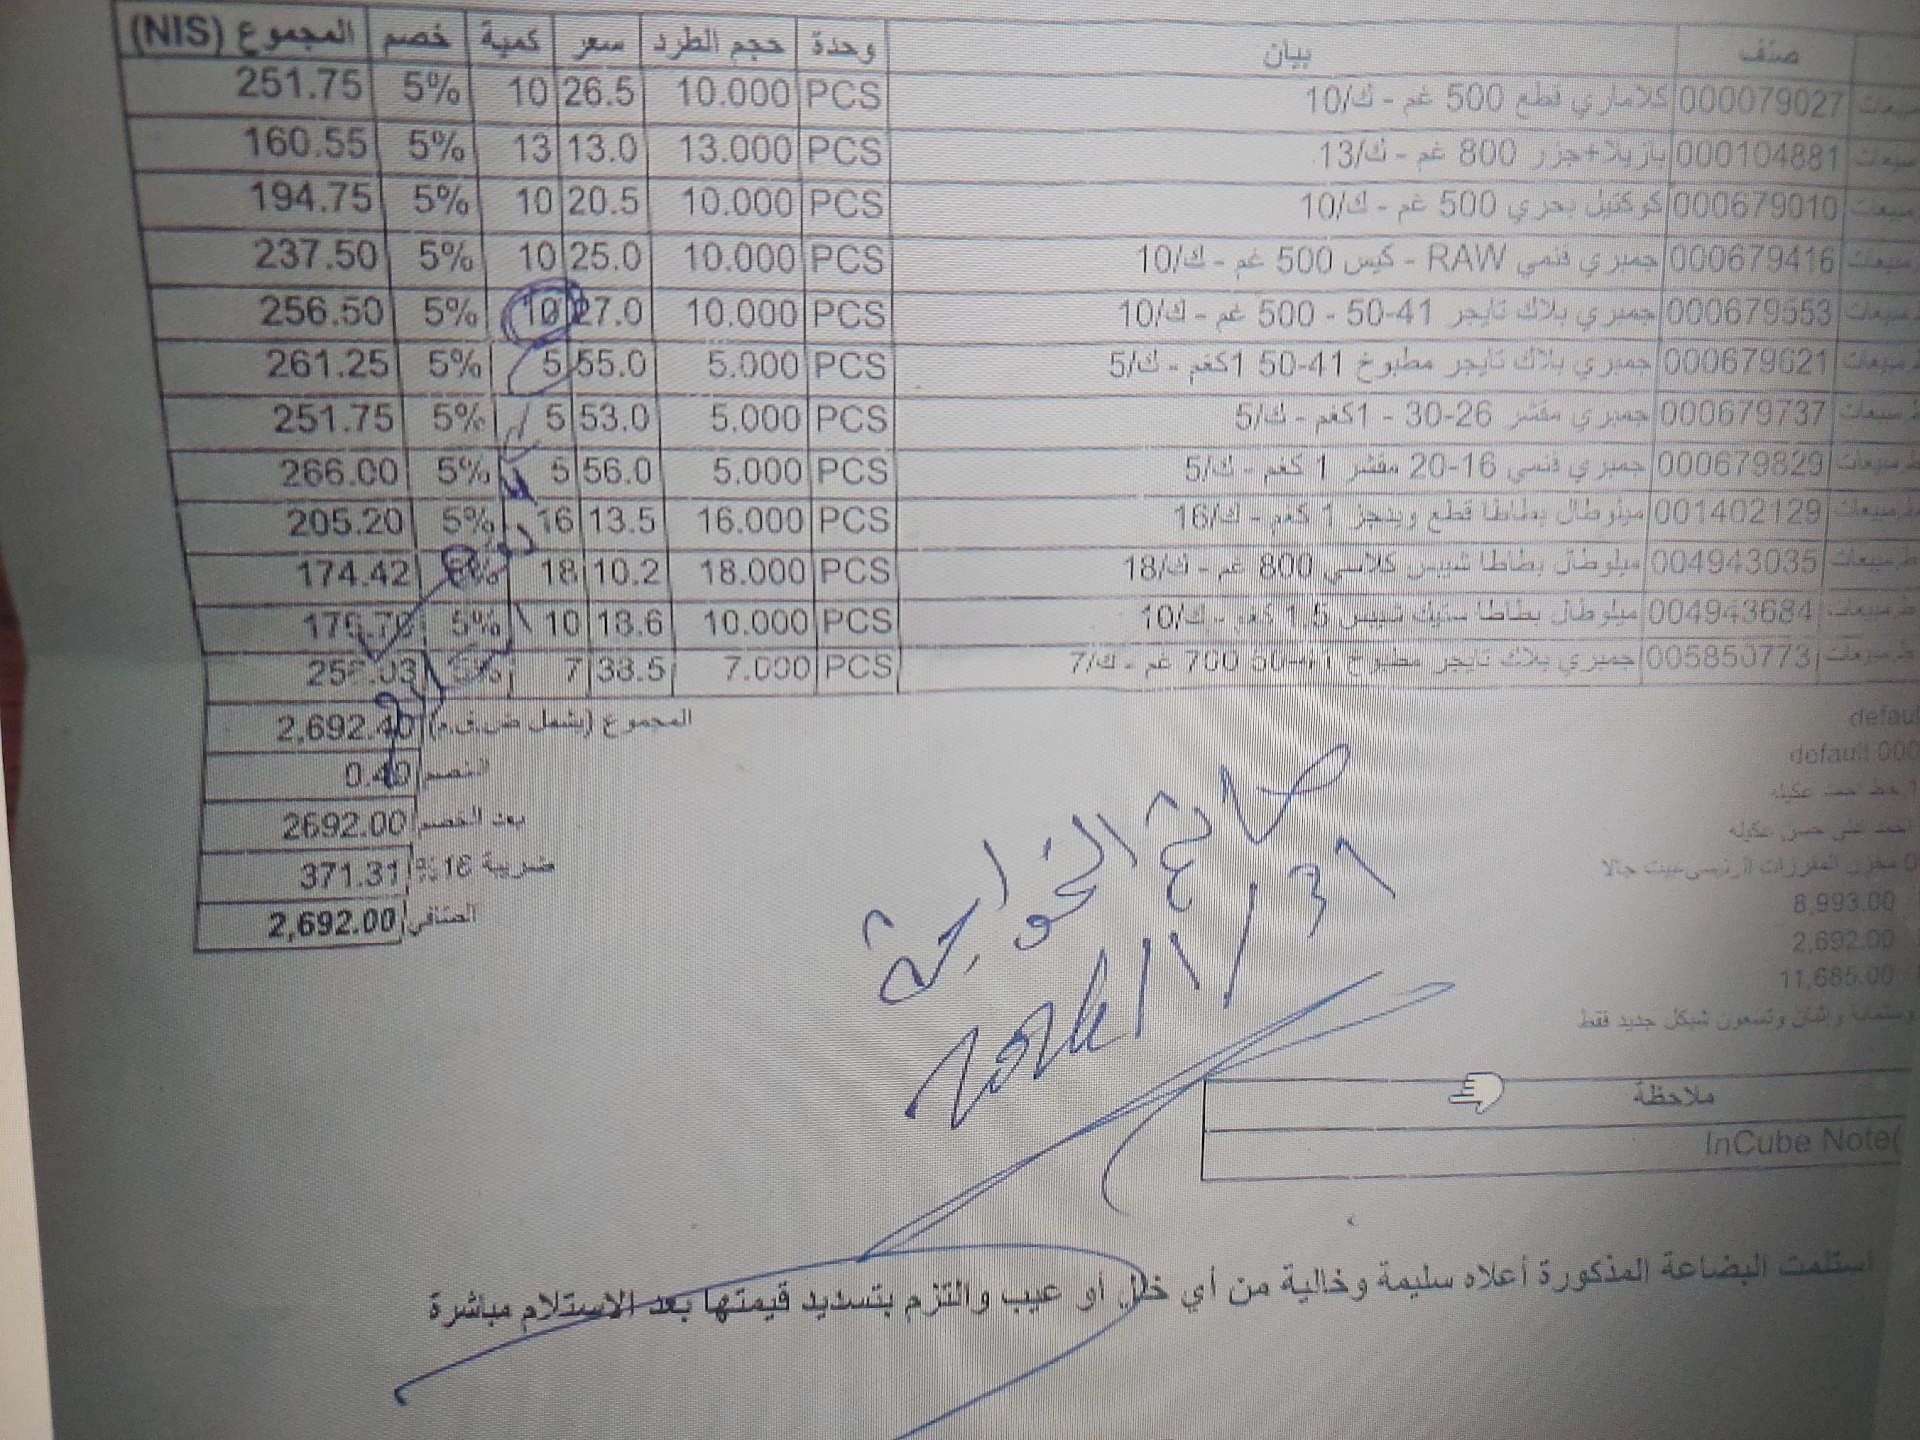 صنف بيان وحدة حجم الطرد سعر كمية خصم المجموع (NIS)
000079027 كلاماري قطع 500 غم - ك/10 PCS 10.000 26.5 10 5% 251.75
000104881 بازيلا+جزر 800 غم - ك/13 PCS 13.000 13.0 13 5% 160.55
000679010 كوكتيل بحري 500 غم - ك/10 PCS 10.000 20.5 10 5% 194.75
000679416 جمبري فنمي RAW - كيس 500 غم - ك/10 PCS 10.000 25.0 10 5% 237.50
000679553 جمبري بلاك تايجر 41-50 - 500 غم - ك/10 PCS 10.000 27.0 10 5% 256.50
000679621 جمبري بلاك تايجر مطبوخ 41-50 1كغم - ك/5 PCS 5.000 55.0 5 5% 261.25
000679737 جمبري مقشر 26-30 - 1كغم - ك/5 PCS 5.000 53.0 5 5% 251.75
000679829 جمبري فنمي 16-20 مقشر 1 كغم - ك/5 PCS 5.000 56.0 5 5% 266.00
001402129 ميلوطال بطاطا قطع ويدجز 1 كغم - ك/16 PCS 16.000 13.5 16 5% 205.20
004943035 ميلوطال بطاطا شيبس كلاسي 800 غم - ك/18 PCS 18.000 10.2 18 174.42
004943684 ميلوطال بطاطا ستيك شيبس 1.5 كغم - ك/10 PCS 10.000 18.6 10 5%
005850773 جمبري بلاك تايجر مطبوخ 41-50 700 غم - ك/7 PCS 7.000 38.5 7
المجموع (يشمل ض.ق.م) 2,692.40
الخصم 0.40
بعد الخصم 2692.00
ضريبة 16% 371.31
الصافي 2,692.00
default 000
احمد علي حسن عكيله
مخزن المفرزات الرئيسي-بيت جالا
8,993.00
2,692.00
11,685.00
وستمائة واثنان وتسعون شيكل جديد فقط
صالح الخواجة
ملاحظة
InCube Note(
استلمت البضاعة المذكورة أعلاه سليمة وخالية من أي خلل أو عيب والتزم بتسديد قيمتها بعد الاستلام مباشرة